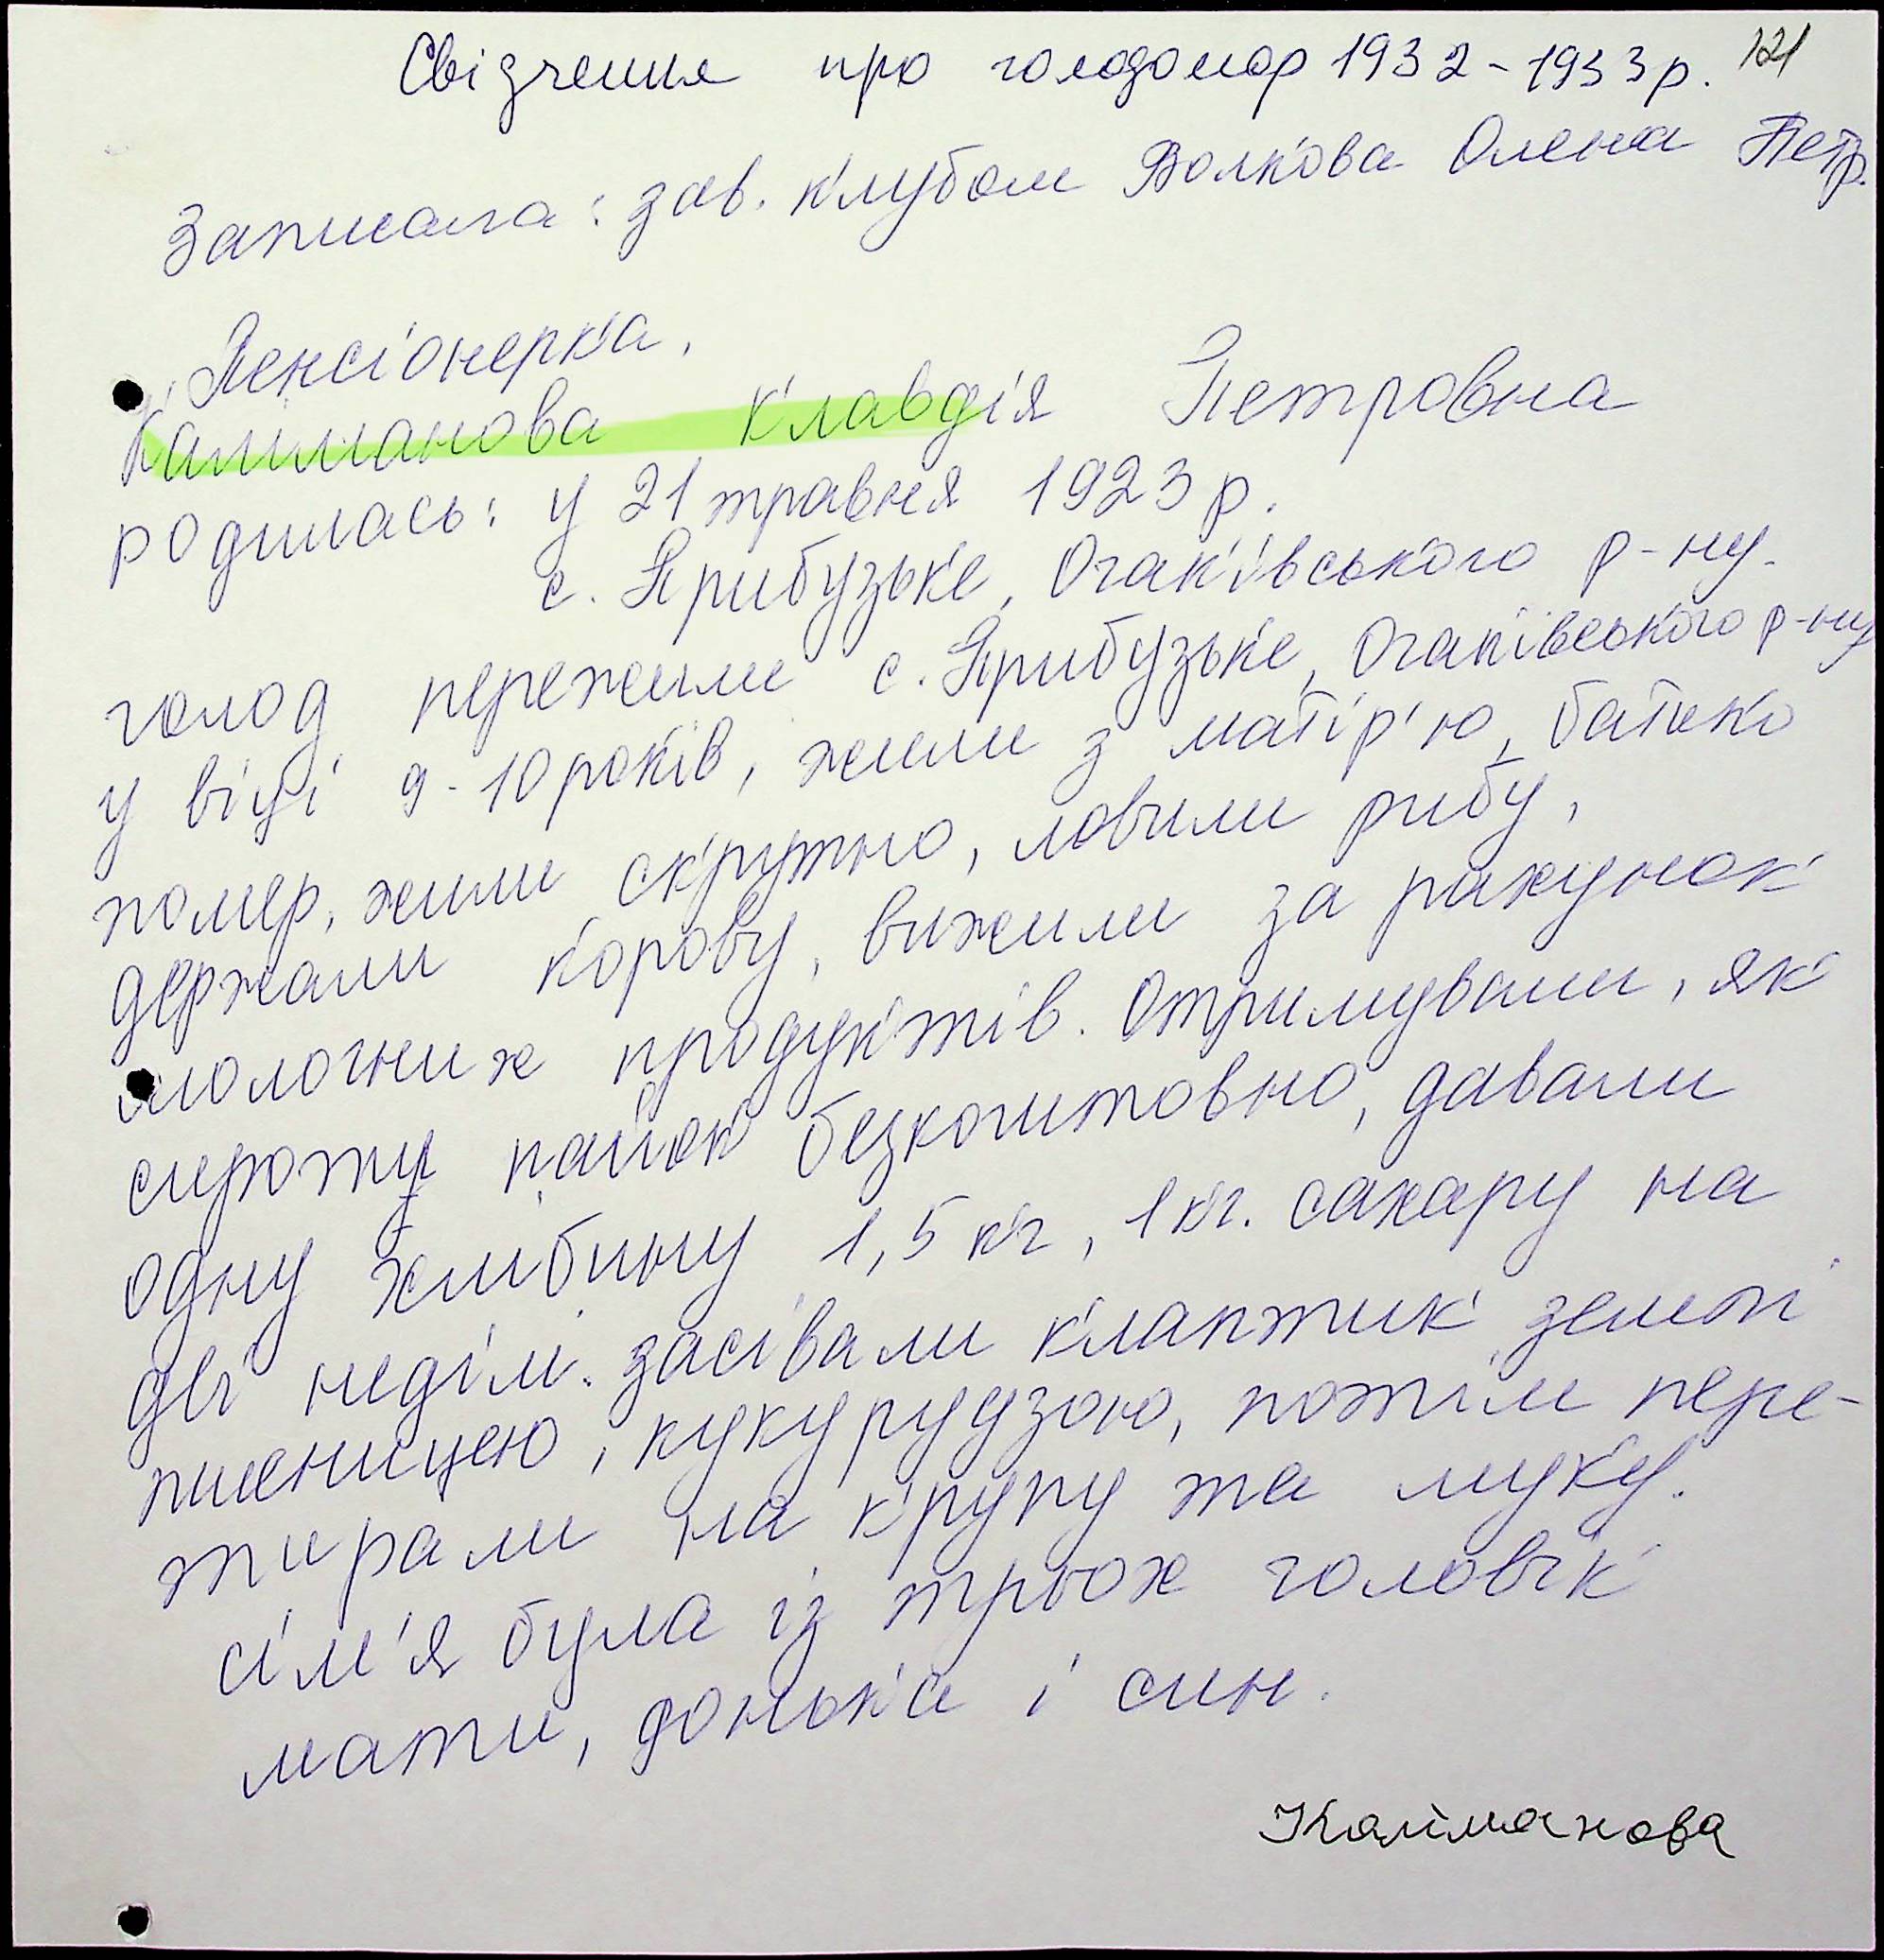 121
Свідчення про голодомор 1932-1933р.
Записала: зав. клубом Волкова Олена Петр.
Пенсіонерка,
Каліманова Клавдія Петровна
родилась: у 21 травня 1923 р.
с. Прибузьке, Очаківського р-ну.
голод пережили с. Прибузьке, Очаківського р-ну
у віці 9-10 років, жили з матір'ю, батько
помер, жили скрутно, ловили рибу,
держали корову, вижили за рахунок
молочних продуктів. Отримували, як
сироти пайок безкоштовно, давали
одну хлібину 1,5 кг, 1 кг. сахару на
дві неділі. засівали клаптик землі
пшеницею, кукурудзою, потім пере-
тирали на крупу та муку.
сім'я була із трьох головік
мати, донька і син.
Каліманова